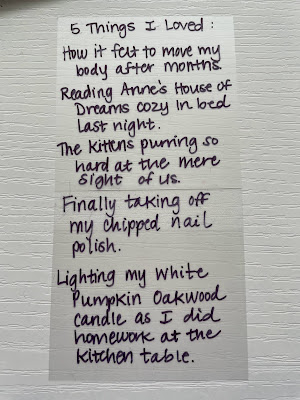 5 Things I Loved :
How it felt to move my
body after months.
Reading Anne's House of
Dreams cozy in bed
last night.
The kittens purring so
hard at the mere
sight of us.
Finally taking off
my chipped nail
polish.
Lighting my White
Pumpkin Oakwood
candle as I did
homework at the
kitchen table.